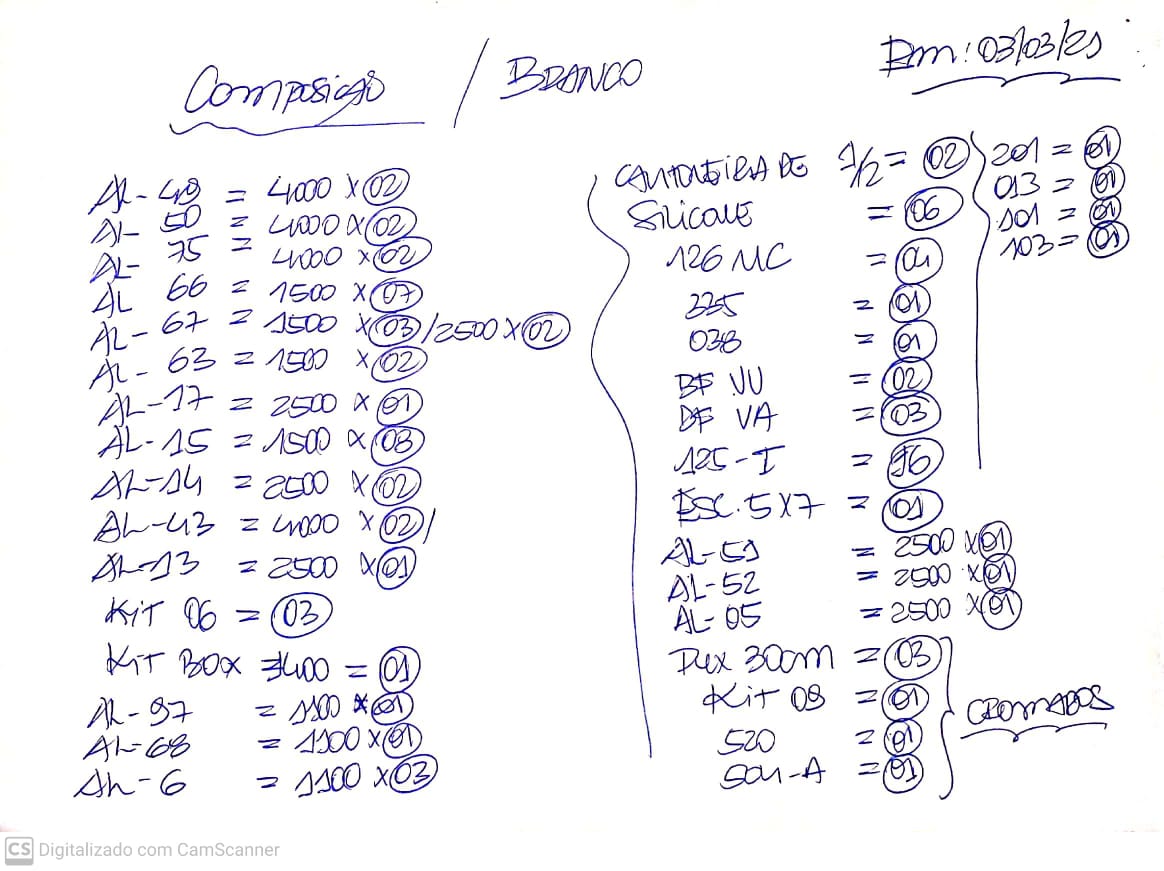 Composição / BRANCO
Em: 03/03/21
AL-40 = 4000 X 02
AL- 50 = 4000 X 02
AL- 75 = 4000 X 02
AL 66 = 1500 X 07
AL- 67 = 1500 X 03 / 2500 X 02
AL- 63 = 1500 X 02
AL-17 = 2500 X 01
AL-15 = 1500 X 03
AL-14 = 2500 X 02
AL-43 = 4000 X 02 /
AL-13 = 2500 X 01
Kit 06 = 03
Kit BOX = 01
AL-97 = 1100 X 01
AL-68 = 1100 X 01
AL-6 = 1100 X 03
CANTONEIRA DE 1/2 = 02
SiLicone = 06
126 MC = 04
335 = 01
038 = 01
BF VU = 02
BF VA = 03
125-I = 16
ESC. 5X7 = 01
AL-51 = 2500 X 01
AL-52 = 2500 X 01
AL- 05 = 2500 X 01
Pux 30cm = 03
Kit 08 = 01
520 = 01
504-A = 01
CROMADOS
201 = 01
013 = 01
101 = 01
103 = 01
CS Digitalizado com CamScanner